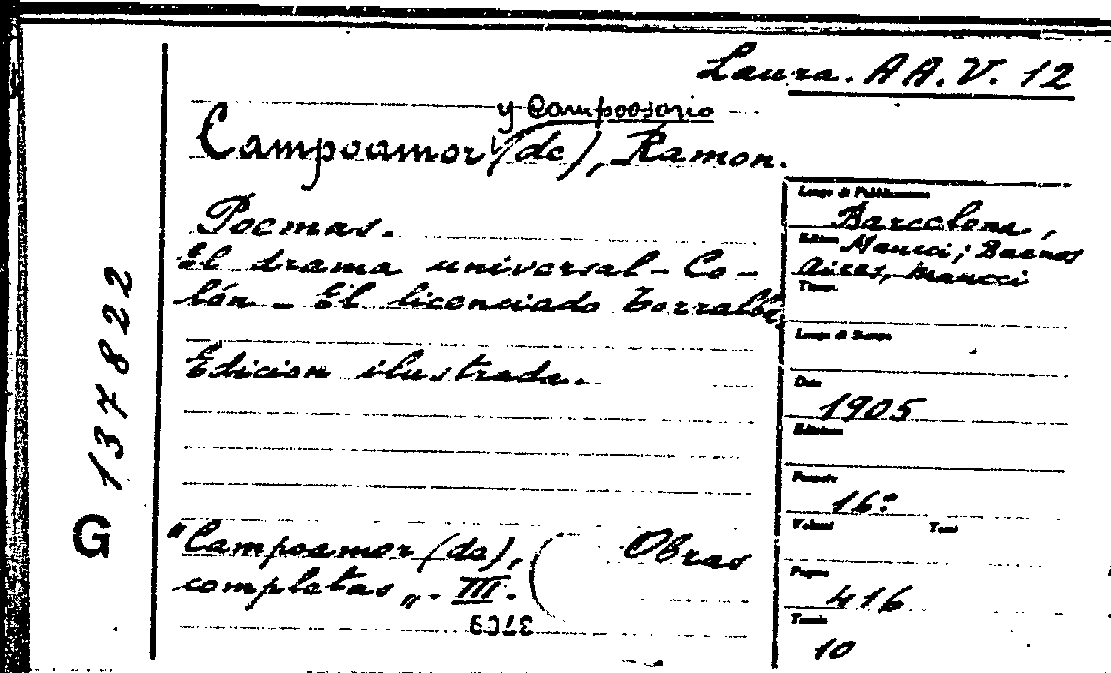 Laura. AA. V. 12
y Campoosorio
Campoamor (de), Ramon.
Poemas.
El drama universal - Co-
lón - El licenciado Torralba
Edicion ilustrada.
"Campoamor (de), Obras
completas". III.
3709
G 137822
Luogo di Pubblicazione
Barcelona,
Editore Maucci; Buenos
Aires, Maucci
Luogo di Stampa
Data
1905
Edizione
Formato
16º
Volumi Tomi
Pagine
416
Tavole
10